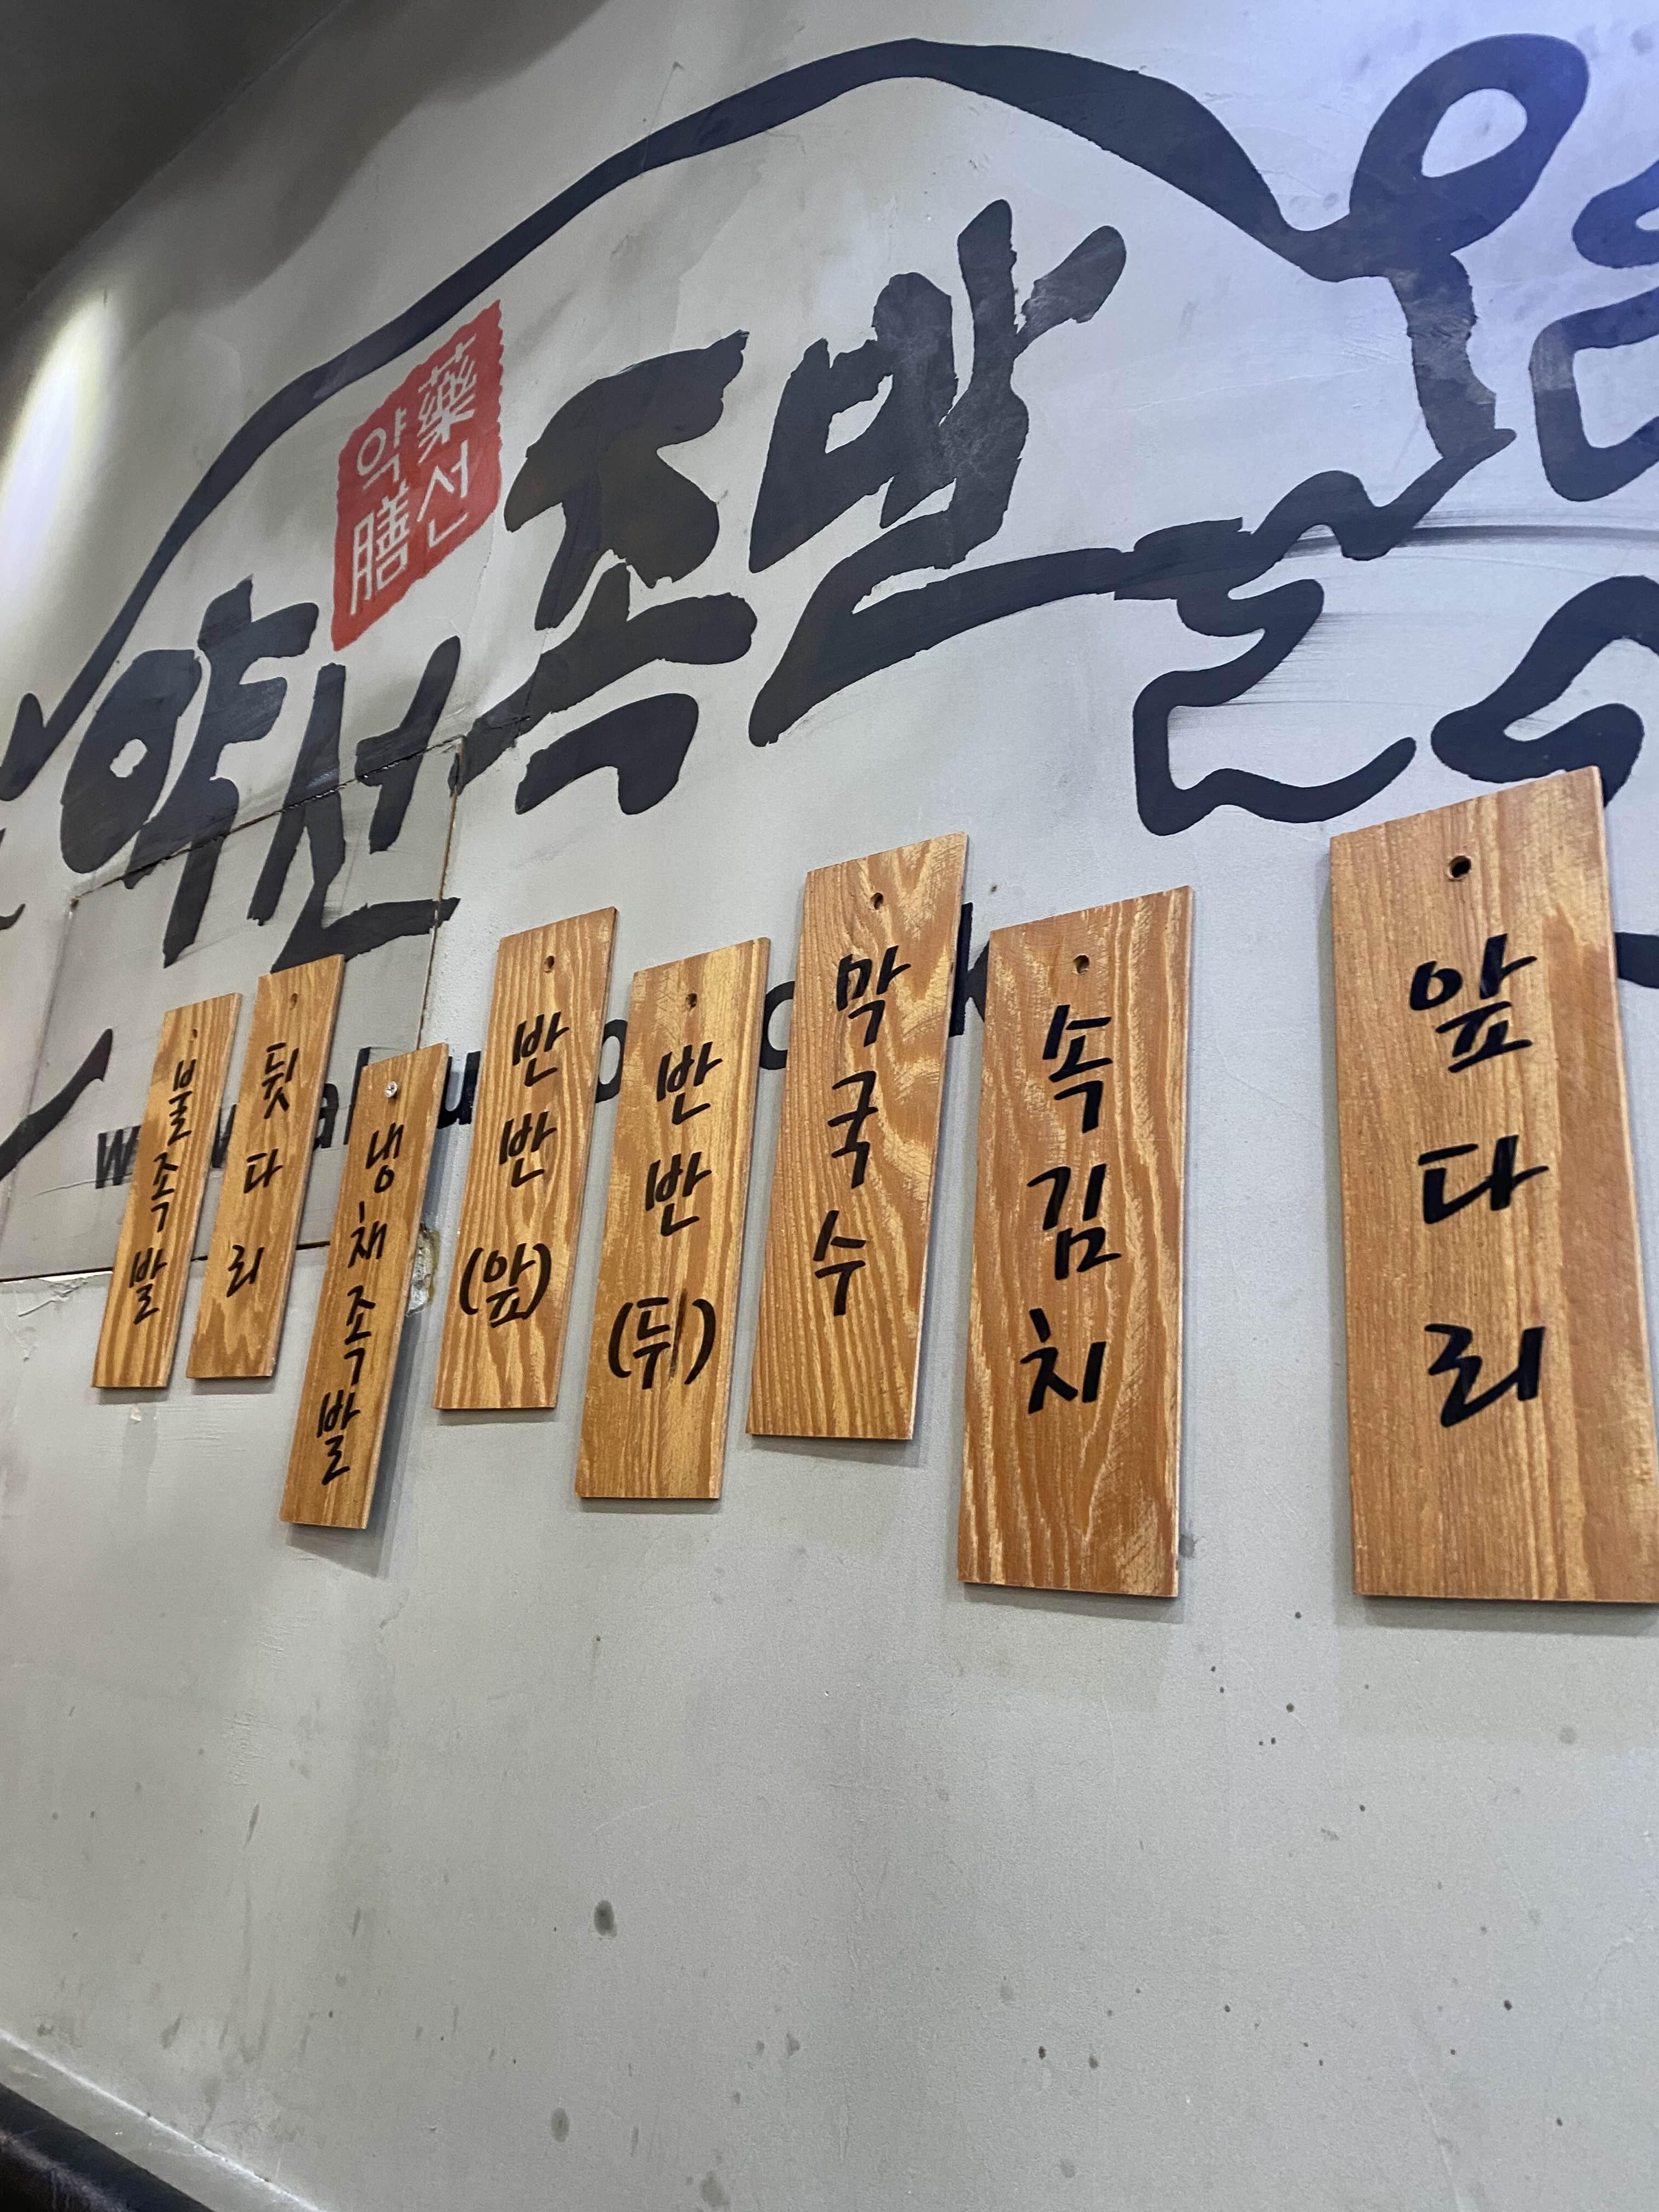 약선
족발
藥선
약膳
불족발
뒷다리
냉채족발
반반(앞)
반반(뒤)
막국수
속김치
앞다리